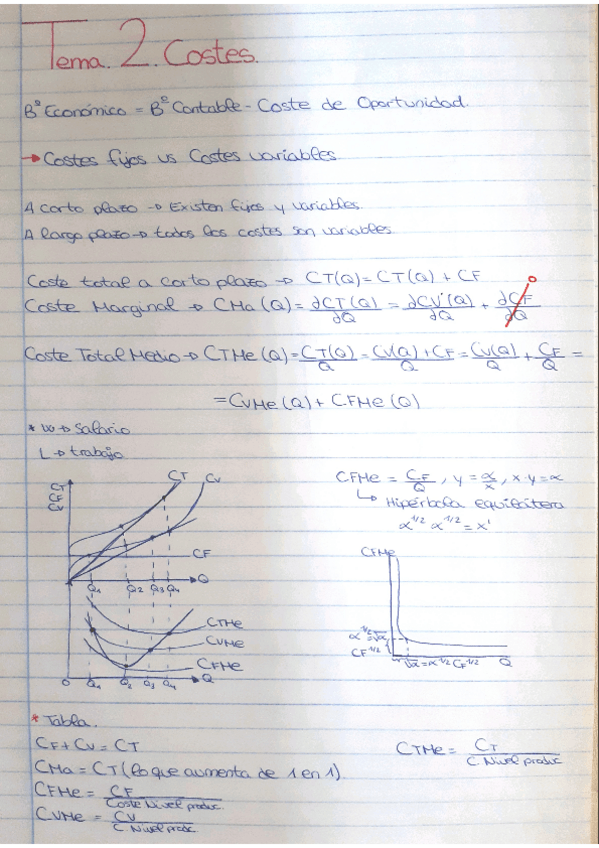 Tema. 2. Costes.
Bº Económico = Bº Contable - Coste de Oportunidad.
→ Costes fijos vs Costes variables
A corto plazo → Existen fijos y variables
A largo plazo → todos los costes son variables
Coste total a corto plazo → CT(Q) = CT(Q) + CF
Coste Marginal → CMa (Q) = ∂CT(Q)/∂Q = ∂CV(Q)/∂Q + ∂CF/∂Q 0
Coste Total Medio → CTMe (Q) = CT(Q)/Q = CV(Q) + CF/Q = CV(Q)/Q + CF/Q =
= CVMe (Q) + CFMe (Q)
* W → Salario
L → trabajo
CFMe = CF/Q , y = α/x , x·y = α
↳ Hipérbola equilátera
α^1/2 α^1/2 = x'
CT CF CV
CT CV
CF
Q
Q1 Q2 Q3 Q4
CTMe
CVMe
CFMe
0 Q1 Q2 Q3 Q4 Q
CFMe
α^1/2=√α
CF^1/2
√α = α^1/2 CF^1/2 Q
* Tabla.
CF + CV = CT
CMa = CT (lo que aumenta de 1 en 1)
CFMe = CF/Coste Nivel produc.
CVMe = CV/C. Nivel produc.
CTMe = CT/C. Nivel produc